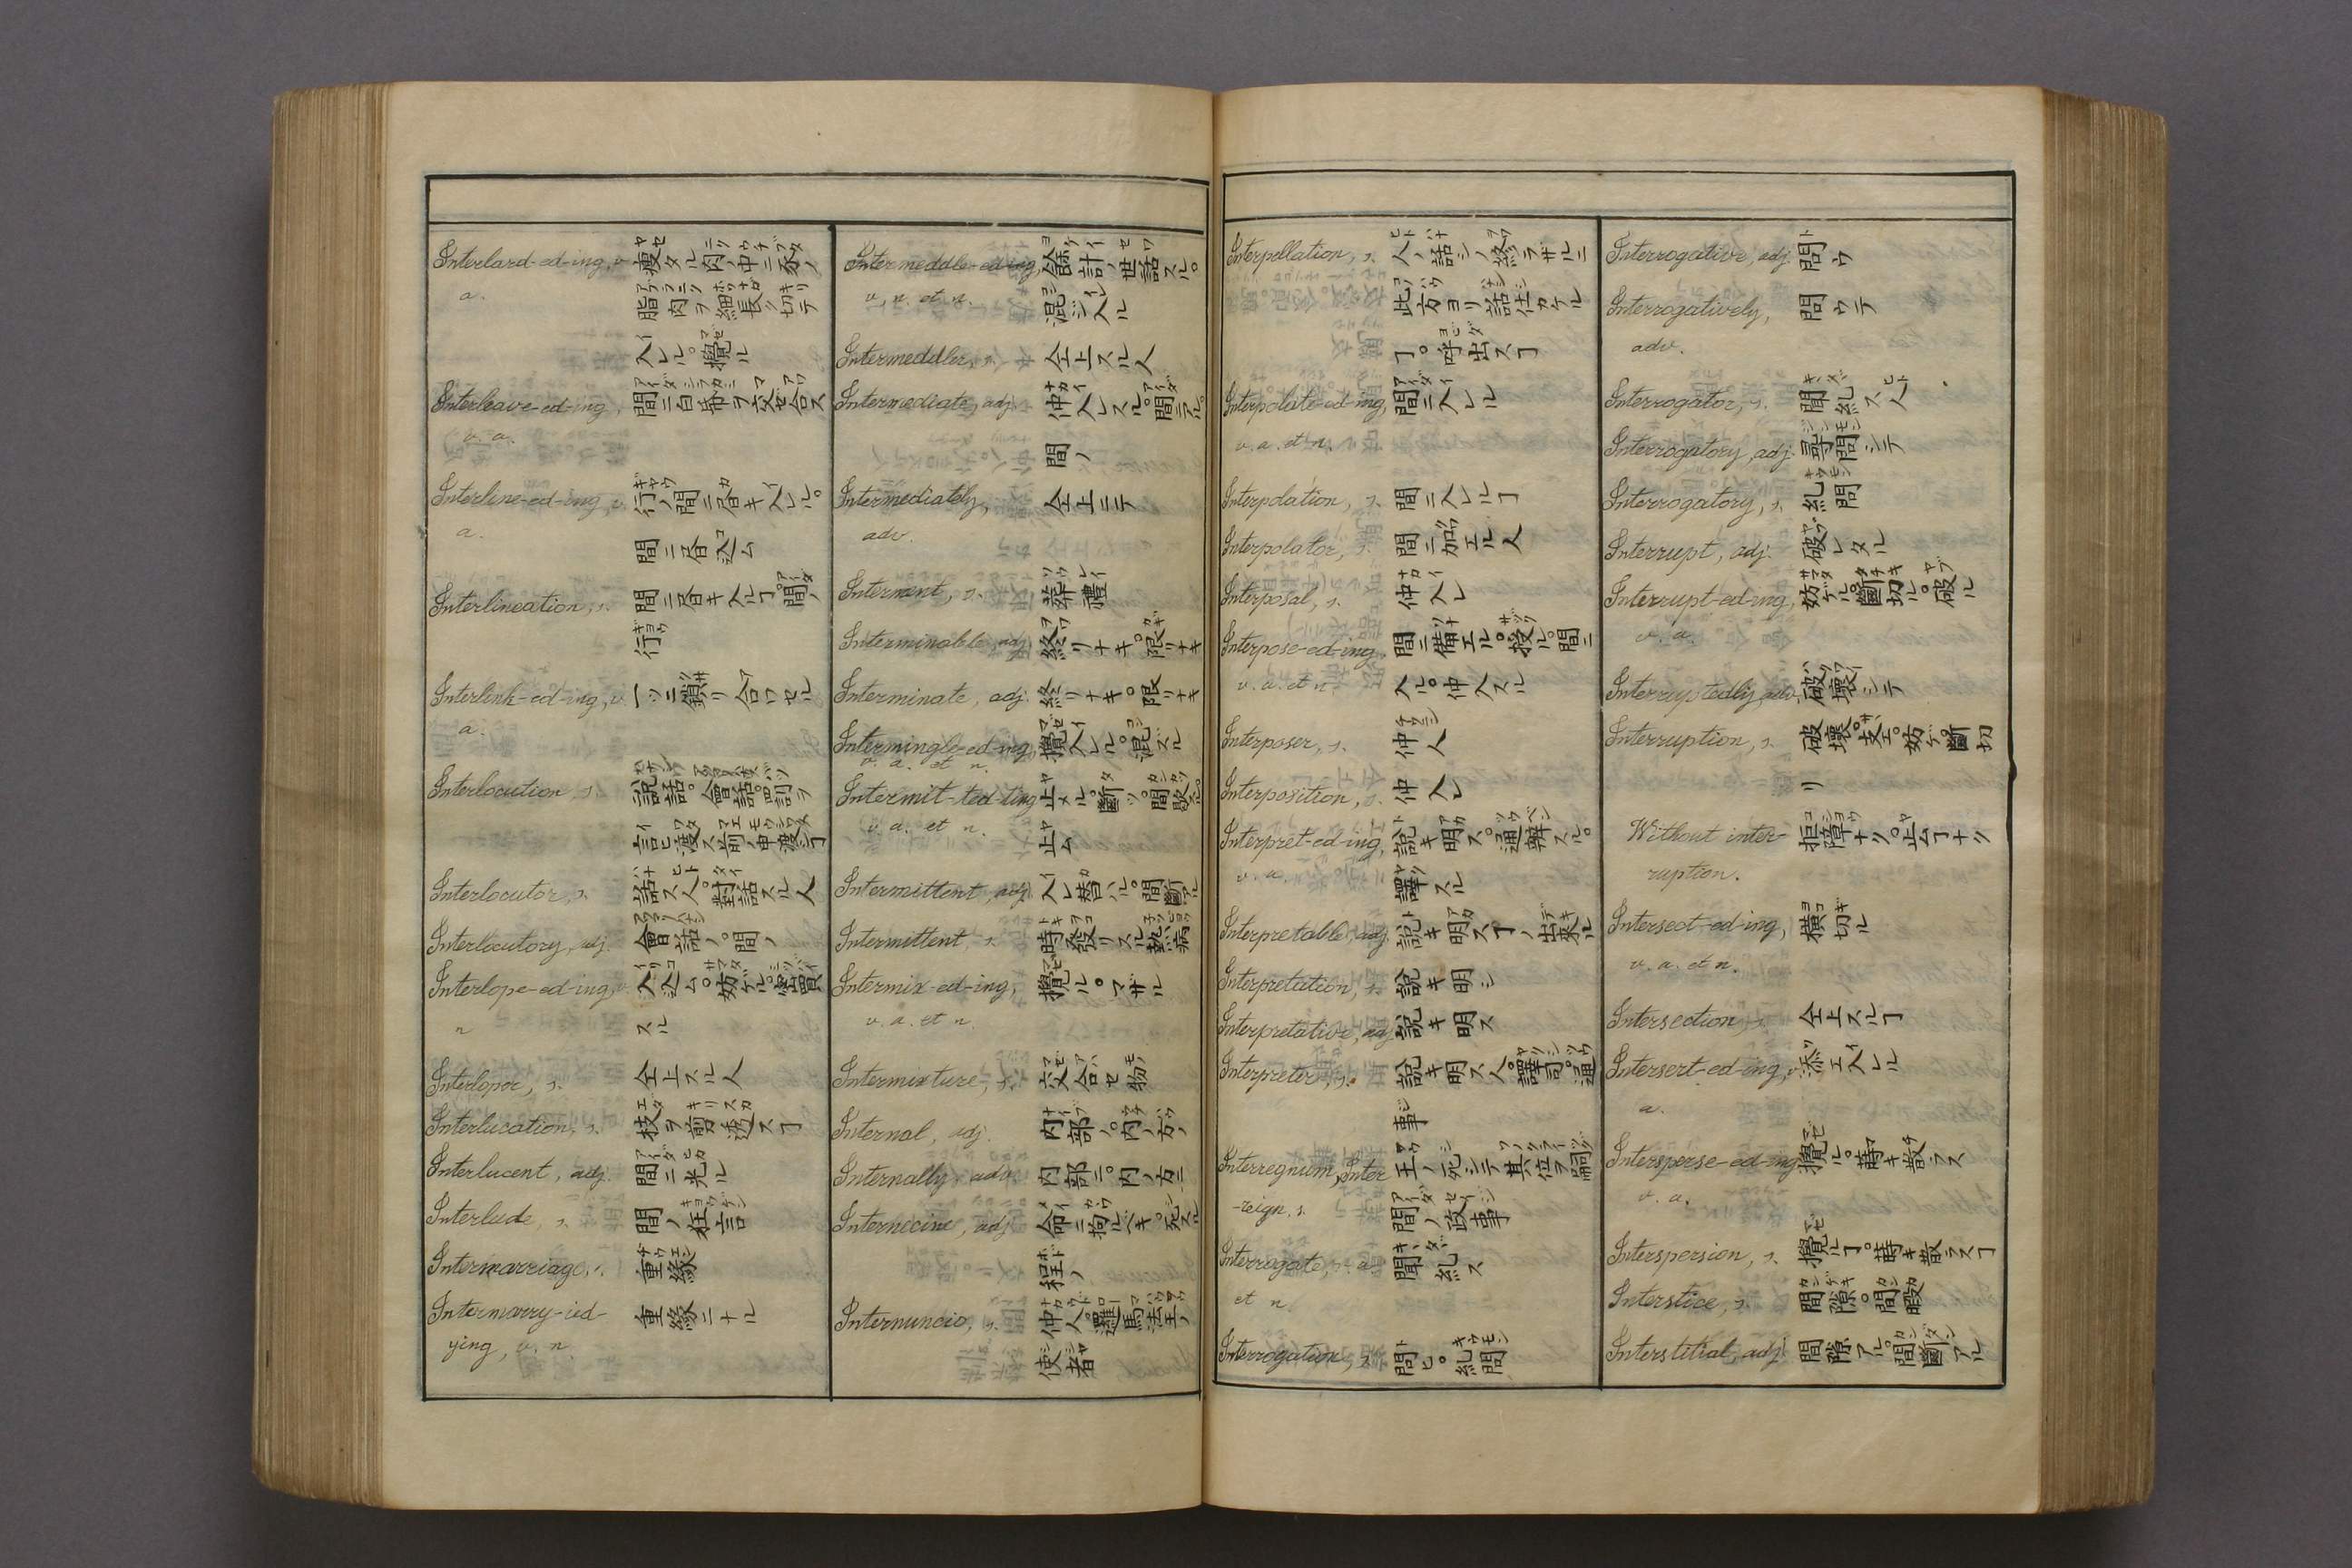 Interlard-ed-ing, v. 瘦タル肉ノ中ニ豕ノ
a. 脂肉ヲ細長ク切テ
入レル。攪ル
Interleave-ed-ing, 間ニ白帋ヲ交セ合ス
v. a.
Interline-ed-ing, v. 行ノ間ニ書キ入レル。
a. 間ニ書込ム
Interlineation, s. 間ニ書キ入ルヿ。間ノ
行
Interlink-ed-ing, v. 一ツニ鎖リ合ワセル
a.
Interlocution, s. 説話。會話。罰ヲ
言ヒ渡ス前ノ申渡シヿ
Interlocutor, s. 話ス人。對話スル人
Interlocutory, adj. 會話ノ。間ノ
Interlope-ed-ing, v. 入込ム。妨ケル。密買
n スル
Interloper, s. 仝上スル人
Interlucation, s. 技ヲ剪透スヿ
Interlucent, adj. 間ニ光ル
Interlude, s. 間ノ狂言
Intermarriage, s. 重縁
Intermarry-ied- 重縁ニナル
ying, v. n.
Intermeddle-ed-ing, 餘計ノ世話スル。
v. n. et a. 混ジ入ル
Intermeddler, s. 仝上スル人
Intermediate, adj. 仲入レスル。間ニアル。
間ノ
Intermediately, 仝上ニテ
adv.
Interment, s. 葬禮
Interminable, adj. 終リナキ。限リナキ
Interminate, adj. 終リナキ。限リナキ
Intermingle-ed-ing, 攪入レル。混ズル
v. a. et n.
Intermit-ted-ting 止メル。斷ツ。間歇スル。
v. a. et n. 止ム
Intermittent, adj. 入レ替ハル。間斷アル
Intermittent, s. 時發リスル熱病
Intermix-ed-ing, 攪ル。マザル
v. a. et n.
Intermixture, s. 交合セ物
Internal, adj. 内部ノ。内ノ方ノ
Internally, adv. 内部ニ。内ノ方ニ
Internecine, adj. 命ニ拘ルベキ。死スル
程ノ
Internuncio, s. 仲人。羅馬法王ノ
使者
Interpellation, s. 人ノ話シノ終ラザルニ
此方ヨリ話仕カケル
ヿ。呼出スヿ
Interpolate-ed-ing, 間ニ入レル
v. a. et n.
Interpolation, s. 間ニ入レルヿ
Interpolator, s. 間ニ加エル人
Interposal, s. 仲入レ
Interpose-ed-ing, 間ニ備エル。授ル。間ニ
v. a. et n. 入ル。仲入スル
Interposer, s. 仲人
Interposition, s. 仲入レ
Interpret-ed-ing, 説キ明ス。通辨スル。
v. a. 譯スル
Interpretable, adj. 説キ明スヿノ出來ル
Interpretation, s. 説キ明シ
Interpretative, adj. 説キ明ス
Interpreter, s. 説キ明ス人。譯司。通
事
Interregnum, Inter 王ノ死シテ其位ヲ嗣グ
-reign, s. 間ノ政事
Interrogate, v. a. 聞糺ス
et n.
Interrogation, s. 問ヒ。糺問
Interrogative, adj. 問ウ
Interrogatively, 問ウテ
adv.
Interrogator, s. 聞糺ス人
Interrogatory, adj. 尋問シテ
Interrogatory, s. 糺問
Interrupt, adj. 破レタル
Interrupt-ed-ing, 妨ゲル。斷切ル。破ル
v. a.
Interruptedly, adv. 破壞シテ
Interruption, s. 破壞。支エ。妨ゲ。斷切
リ
Without inter- 拒障ナク。止ムヿナク
ruption.
Intersect-ed-ing, 横切ル
v. a. et n.
Intersection, s. 仝上スルヿ
Intersert-ed-ing, v. 添エ入レル
a.
Intersperse-ed-ing 攪ル。蒔キ散ラス
v. a.
Interspersion, s. 攪ルヿ。蒔キ散ラスヿ
Interstice, s. 間隙。間暇
Interstitial, adj. 間隙アル。間斷アル